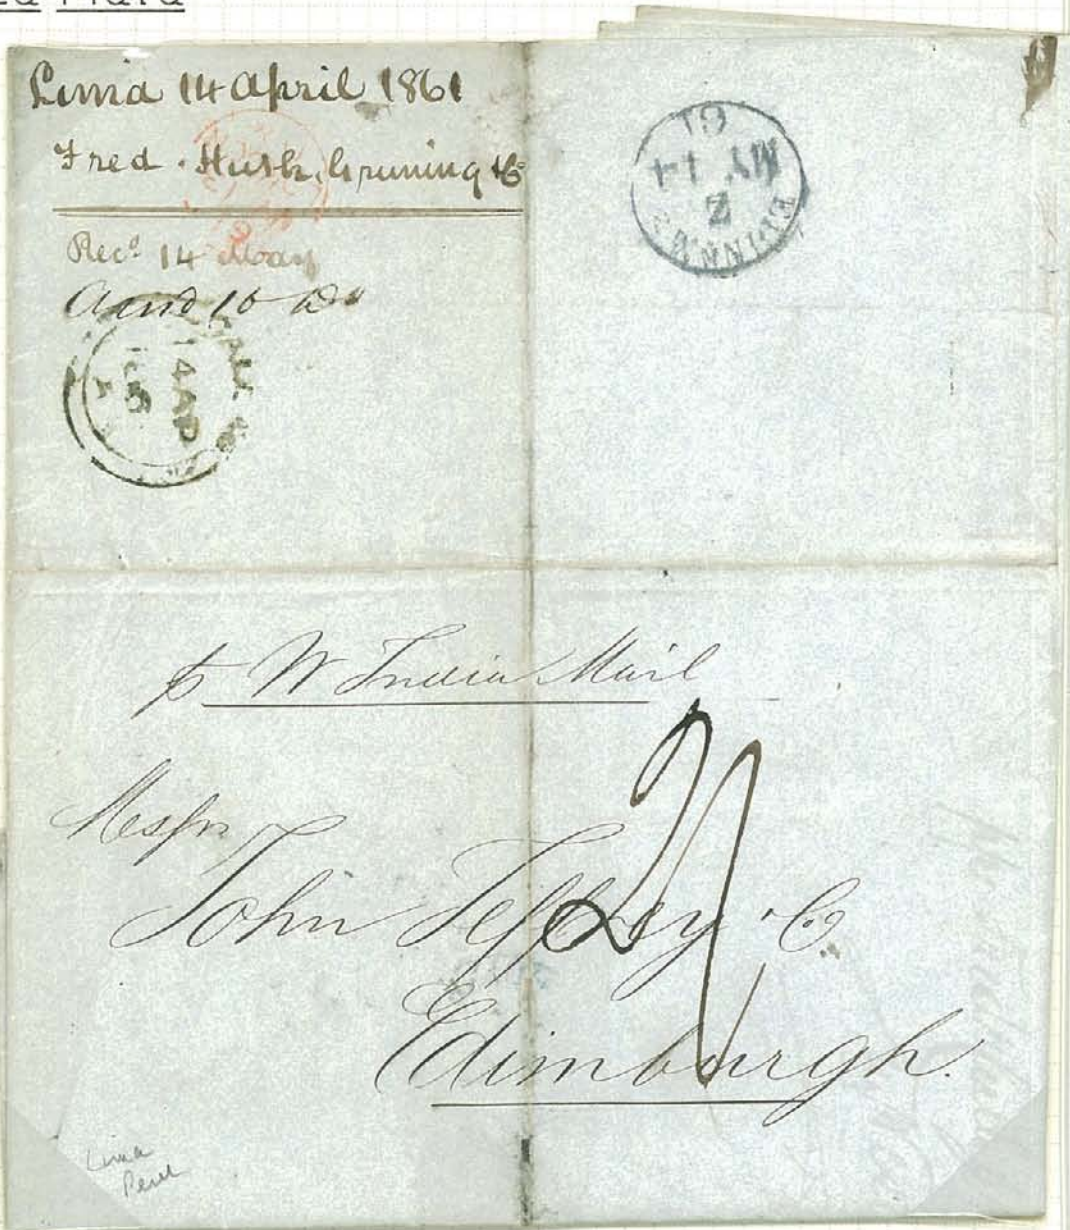 Lima 14 April 1861
Fred. Huth, Gruning & Co
Recd 14 May
Ansd 16 do
14 AP
61
MY 14
Z
EDINBURGH
p W India Mail
Messrs
John Jeffrey & Co
Edinburgh.
Lima
Peru